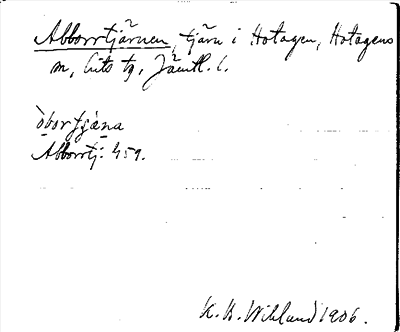 Abborrtjärnen, tjärn i Hotagen, Hotagens
sn, Lits tg, Jämtl. l.
òbortjäna
Abborrtj: 459.
K. B. Wiklund 1906.